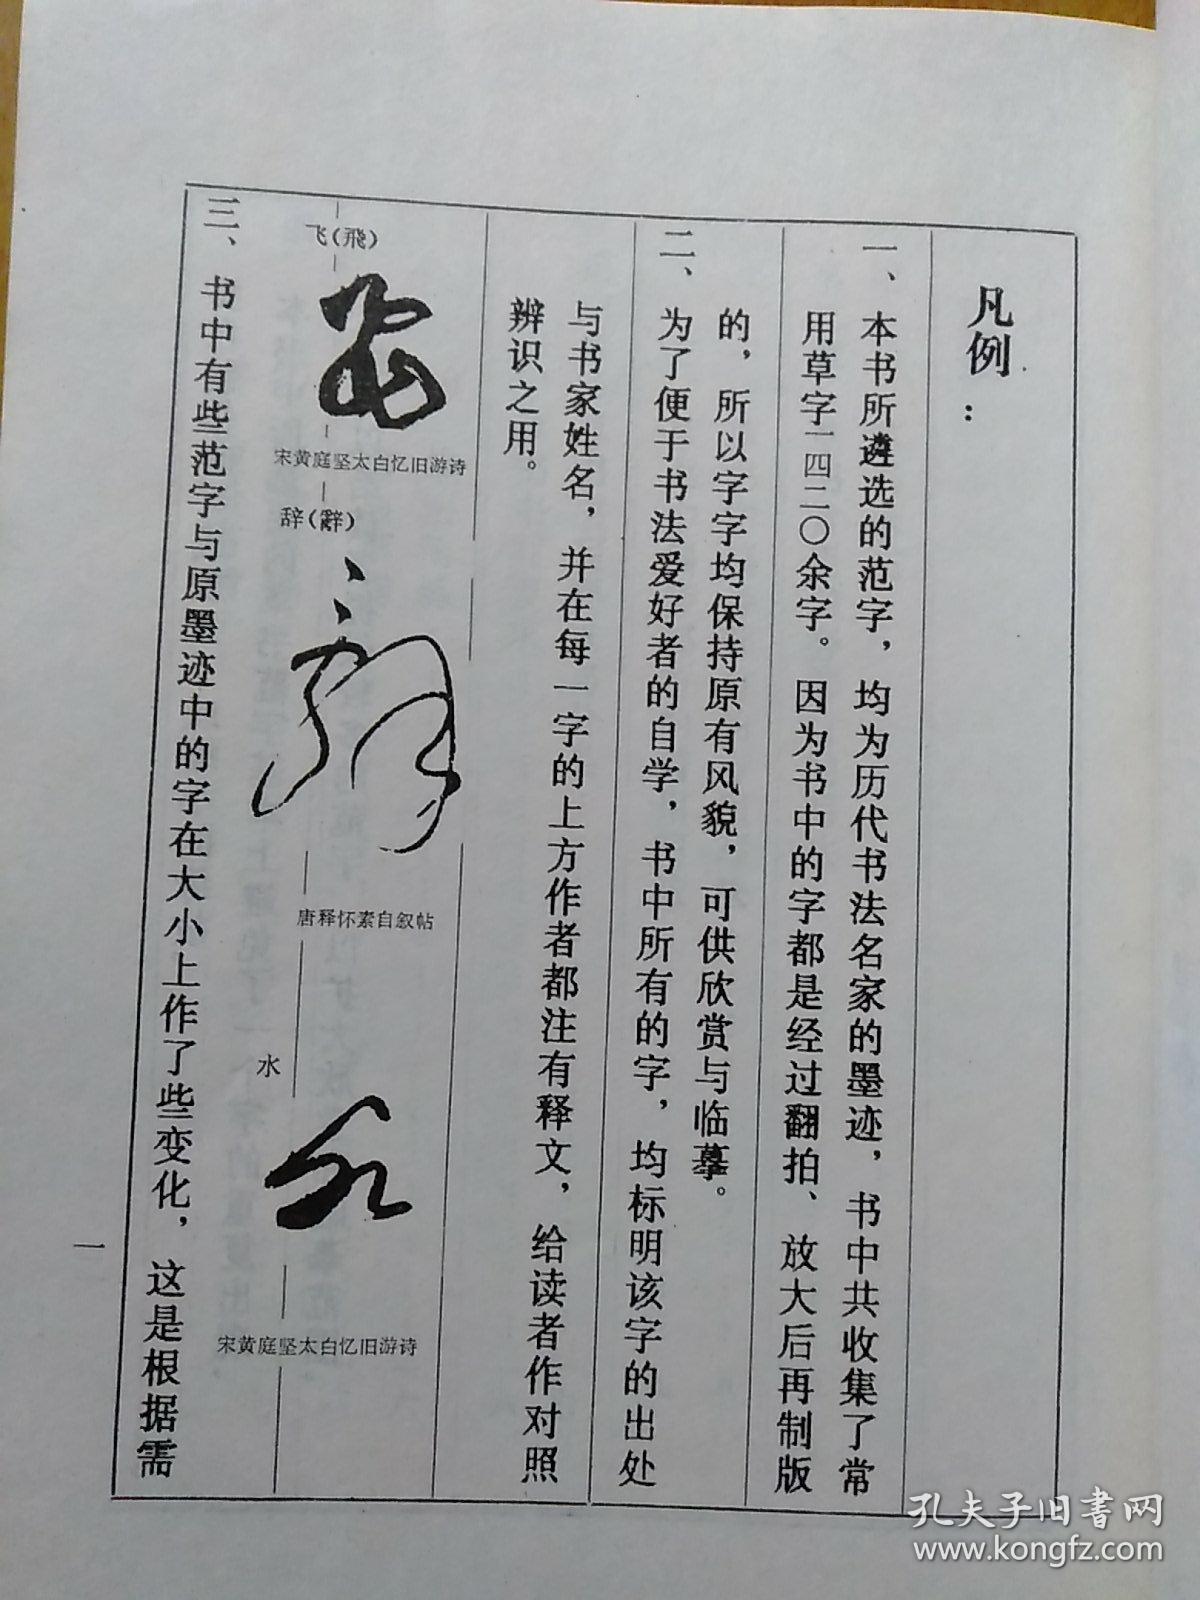 凡例：
一、本书所遴选的范字，均为历代书法名家的墨迹，书中共收集了常
用草字一四二〇余字。因为书中的字都是经过翻拍、放大后再制版
的，所以字字均保持原有风貌，可供欣赏与临摹。
二、为了便于书法爱好者的自学，书中所有的字，均标明该字的出处
与书家姓名，并在每一字的上方作者都注有释文，给读者作对照
辨识之用。
飞(飛)
飛
宋黄庭坚太白忆旧游诗
辞(辭)
辭
唐释怀素自叙帖
水
水
宋黄庭坚太白忆旧游诗
三、书中有些范字与原墨迹中的字在大小上作了些变化，这是根据需
一
孔夫子旧书网
www.kongfz.com